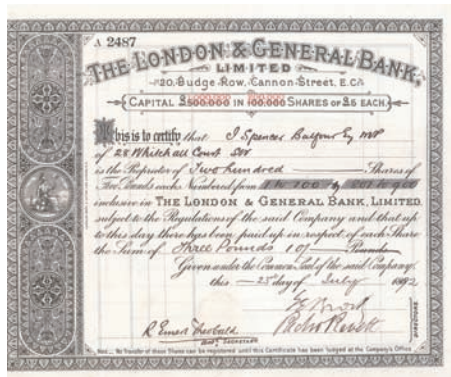 A 2487
THE LONDON & GENERAL BANK,
LIMITED
20, Budge Row, Cannon Street, E.C.
CAPITAL £500.000 IN 100.000 SHARES OF £5 EACH.
This is to certify that J Spencer Balfour Esq MP
of 28 Whitehall Court SW
is the Proprietor of Two hundred Shares of
Five Pounds each Numbered from 1 to 100 & 801 to 900
inclusive in THE LONDON & GENERAL BANK, LIMITED
subject to the Regulations of the said Company and that up
to this day there has been paid up in respect of each Share
the Sum of Three Pounds 10/- Pounds
Given under the Common Seal of the said Company
this 25 day of July 1892
DIRECTORS
SECRETARY
Note._ No Transfer of these Shares can be registered until this Certificate has been lodged at the Company's Office